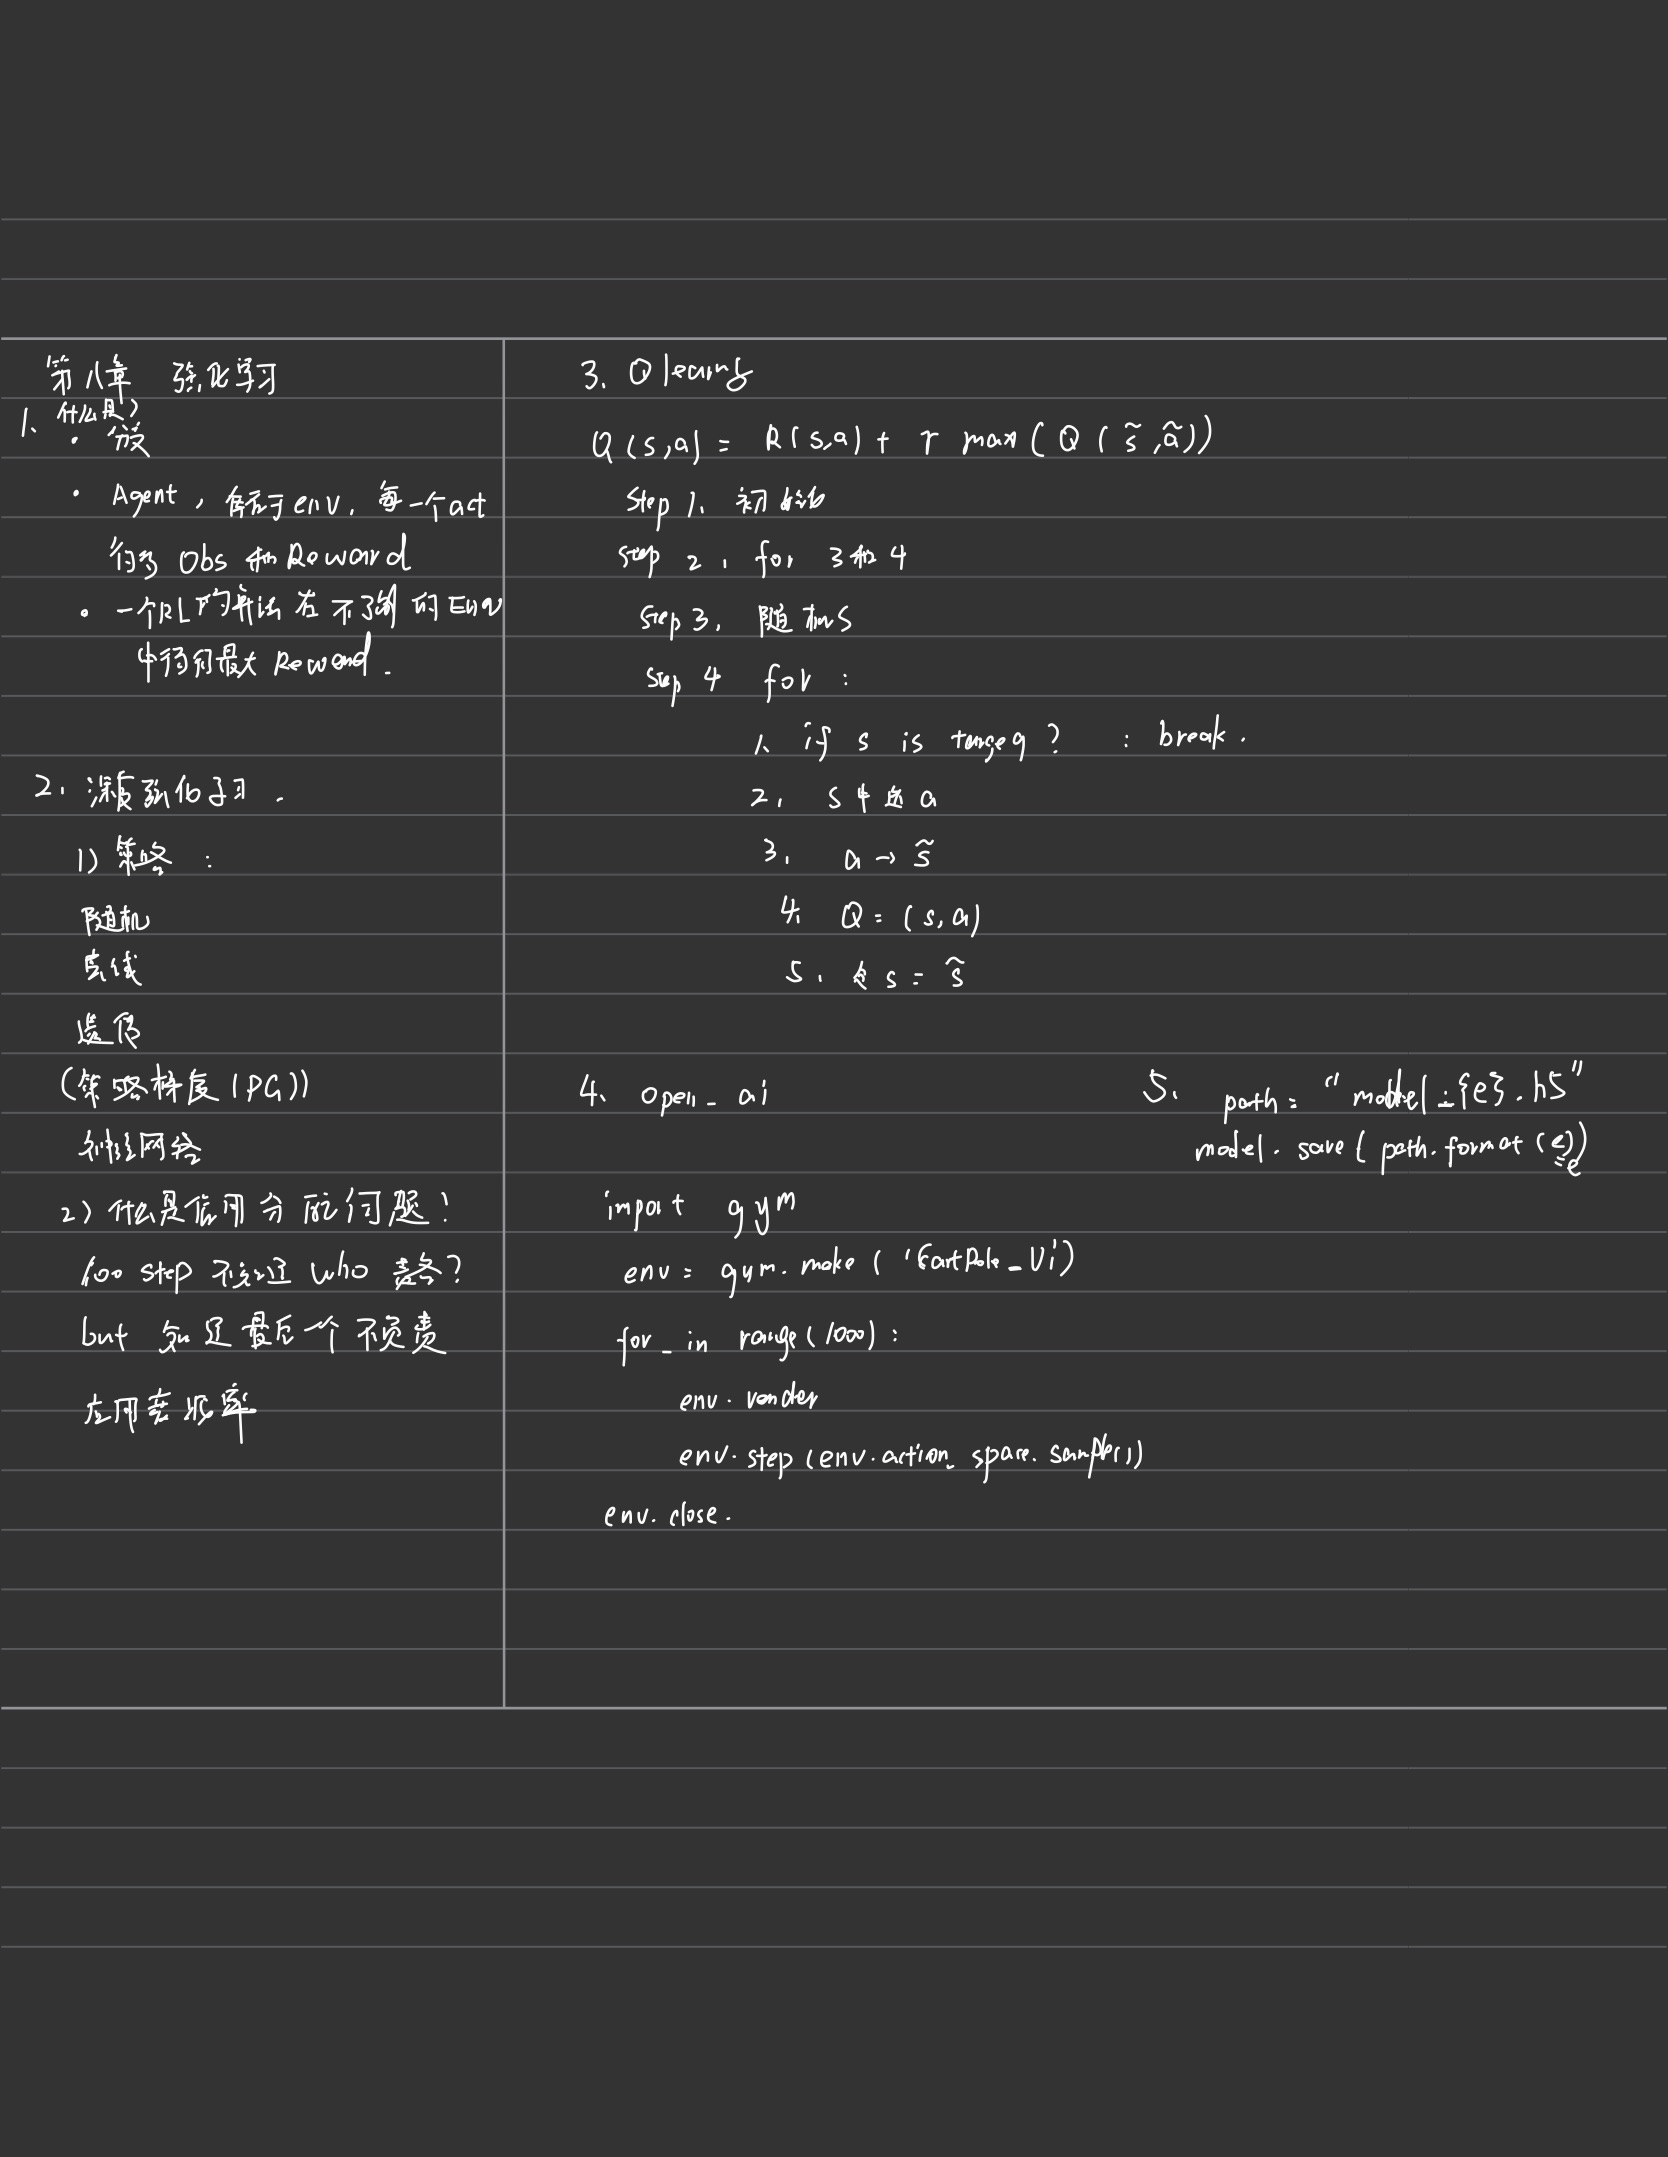 第八章 强化学习
1、什么是?
·
· Agent, 存在于env, 每一个act
得到 Obs 和Reward
· 一个RL的算法在不了解的Env
中得到最大Reward.
2、深度强化学习.
1) 策略:
随机
贪心
遗传
(策略梯度(PG))
神经网络
2) 什么是信用分配问题?
100 step 不该过 who 责备?
but 知道最后一个不负责
应用
3、Q learing
Q(s,a) = R(s,a) + r max(Q(s̃,ã))
Step 1、初始化
step 2、for 3和4
Step 3、随机S
Step 4 for :
1、if s is targe9 ? : break.
2、S中选a
3、a → s̃
4、Q = (s,a)
5、令 s = s̃
4、open_ai
import gym
env = gym.make ( 'CartPole_V1)
for _ in range(1000) :
env. render
env. step (env.action_space.sample())
env. close.
5、path = "model_{e}.h5"
model. save ( path. format (e))